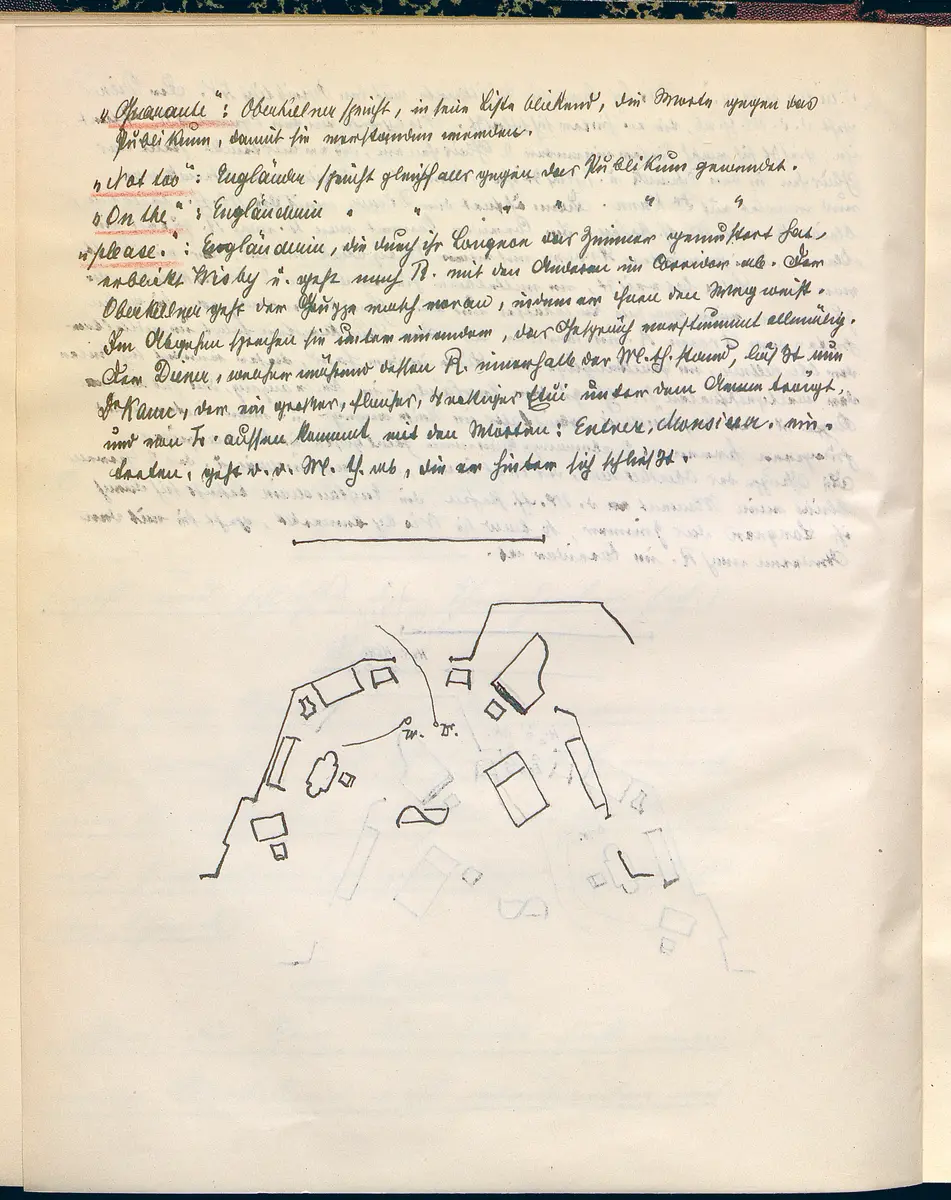 „Quarante“: Oberkellner spricht, in seine Liste blickend, die Worte gegen das
Publikum, damit sie verstanden werden.
„Not too“: Engländer spricht gleichfalls gegen das Publikum gewendet.
„On the“: Engländerin " " " " " "
„please.“: Engländerin, die durch ihr Longnon das Zimmer gemustert hat,
erblickt Wisby u. geht nach R. mit den Anderen im Corridor ab. Der
Oberkellner geht der Gruppe rasch voran, indem er ihnen den Weg weist.
Im Abgehen sprechen sie unter einander, das Gespräch verstummt allmälig.
Der Diener, welcher während dessen R. innerhalb der M. th. stand, läßt nun
Dr Kann, der ein großes, flaches, 4eckiges Etui unter dem Arme trägt,
und von L. aussen kommt mit den Worten: Entrez, Monsieur. ein-
treten, geht d. d. M. th. ab, die er hinter sich schließt.
W. D.